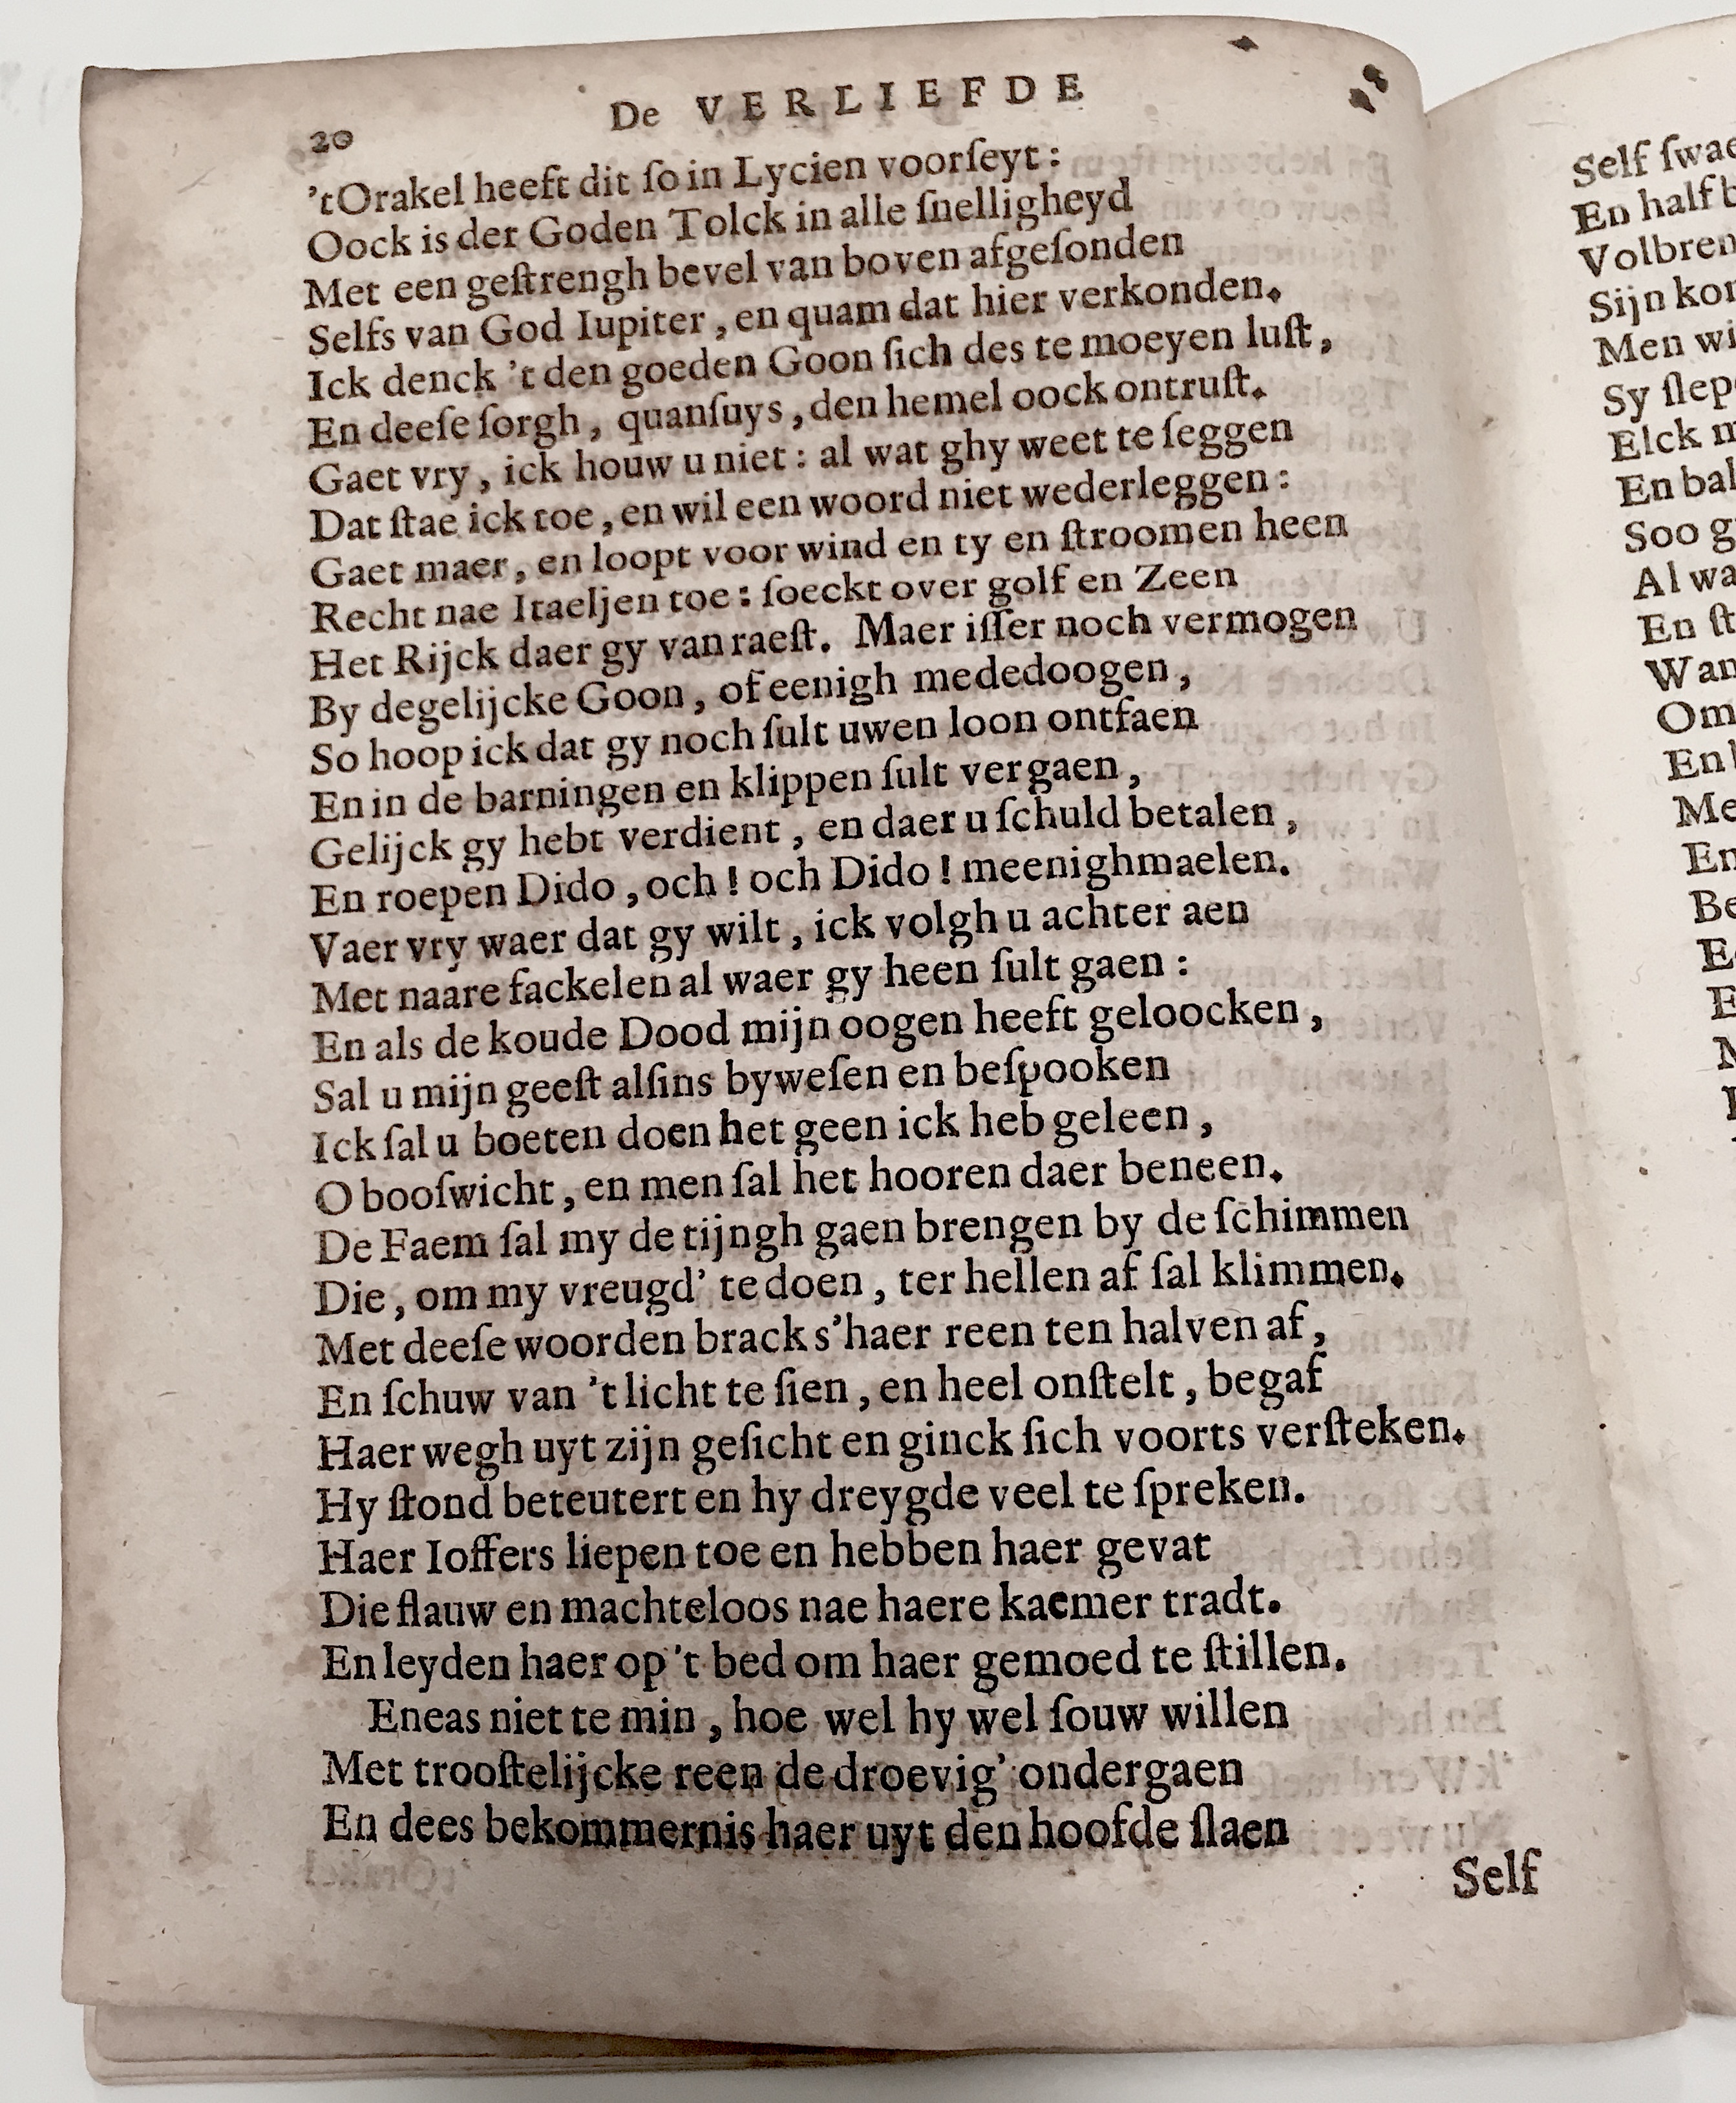 De VERLIEFDE
20
'tOrakel heeft dit ſo in Lycien voorſeyt:
Oock is der Goden Tolck in alle ſnelligheyd
Met een geſtrengh bevel van boven afgeſonden
Selfs van God Iupiter, en quam dat hier verkonden.
Ick denck 't den goeden Goon ſich des te moeyen luſt,
En deeſe ſorgh, quanſuys, den hemel oock ontruſt.
Gaet vry, ick houw u niet: al wat ghy weet te ſeggen
Dat ſtae ick toe, en wil een woord niet wederleggen:
Gaet maer, en loopt voor wind en ty en ſtroomen heen
Recht nae Itaeljen toe: ſoeckt over golf en Zeen
Het Rijck daer gy van raeſt. Maer iſſer noch vermogen
By degelijcke Goon, of eenigh mededoogen,
So hoop ick dat gy noch ſult uwen loon ontfaen
En in de barningen en klippen ſult vergaen,
Gelijck gy hebt verdient, en daer u ſchuld betalen,
En roepen Dido, och! och Dido! meenighmaelen.
Vaer vry waer dat gy wilt, ick volgh u achter aen
Met naare fackelen al waer gy heen ſult gaen:
En als de koude Dood mijn oogen heeft geloocken,
Sal u mijn geeſt alſins byweſen en beſpooken
Ick ſal u boeten doen het geen ick heb geleen,
O booſwicht, en men ſal het hooren daer beneen.
De Faem ſal my de tijngh gaen brengen by de ſchimmen
Die, om my vreugd' te doen, ter hellen af ſal klimmen.
Met deeſe woorden brack s'haer reen ten halven af,
En ſchuw van 't licht te ſien, en heel onſtelt, begaf
Haer wegh uyt zijn geſicht en ginck ſich voorts verſteken.
Hy ſtond beteutert en hy dreygde veel te ſpreken.
Haer Ioffers liepen toe en hebben haer gevat
Die flauw en machteloos nae haere kaemer tradt.
En leyden haer op 't bed om haer gemoed te ſtillen.
Eneas niet te min, hoe wel hy wel ſouw willen
Met trooſtelijcke reen de droevig' ondergaen
En dees bekommernis haer uyt den hoofde ſlaen
Self
Self
En half
Sijn
Men
Sy
Elck
En
Soo
Al
En
Om